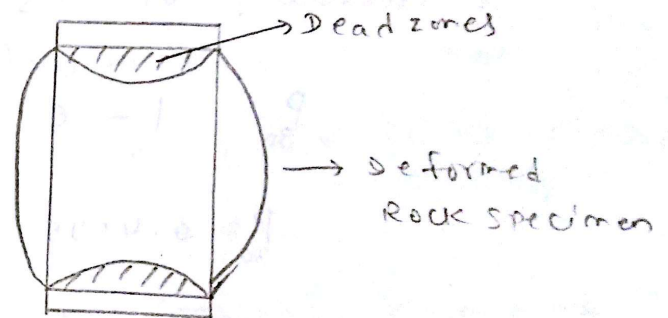 Dead zones
Deformed
Rock specimen